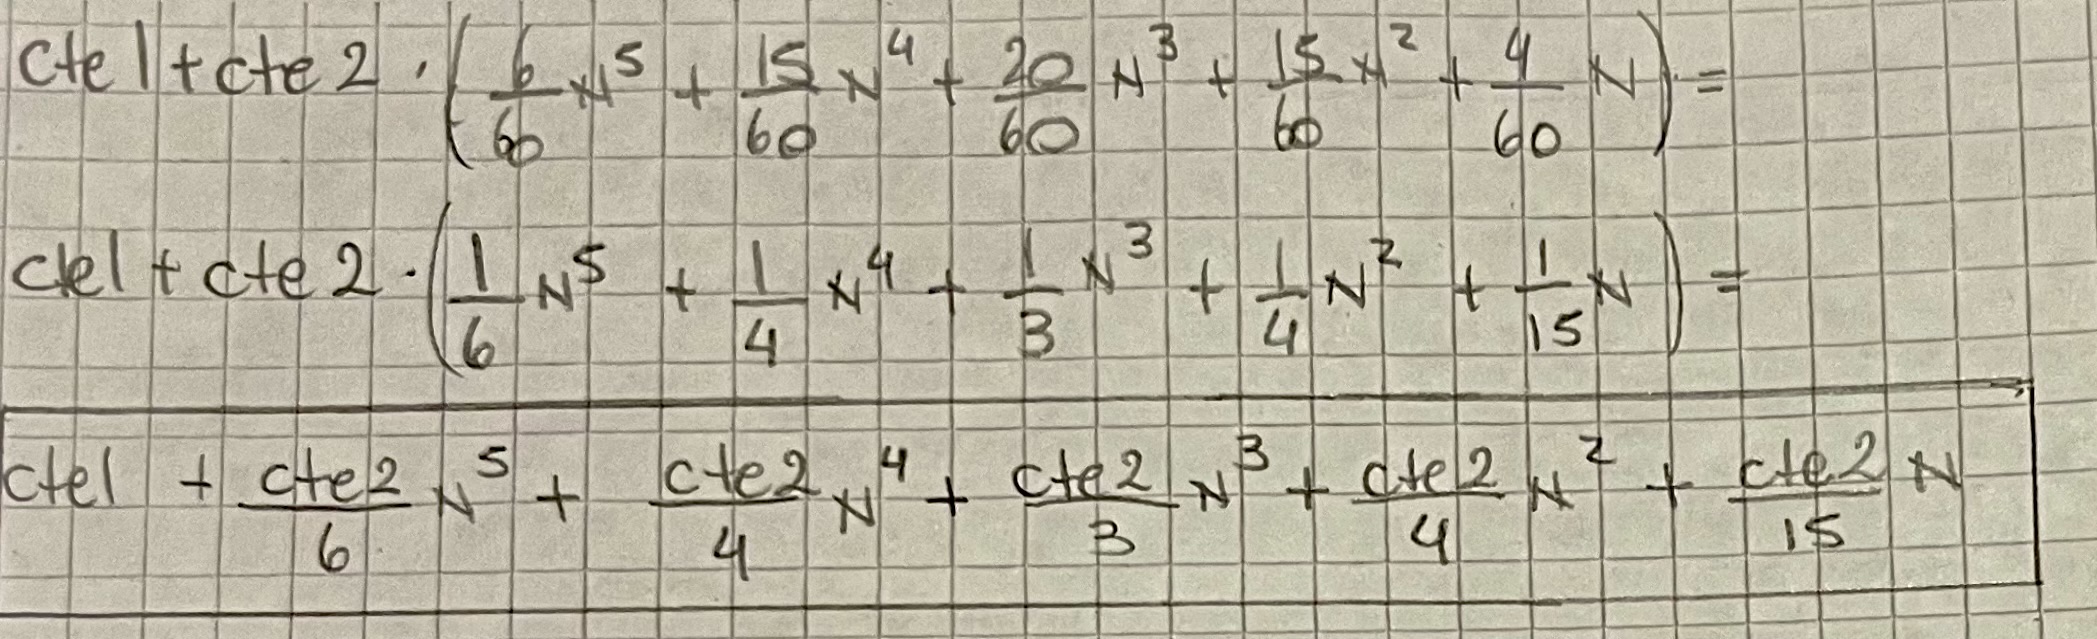 cte1 + cte2 · (6/60 N^5 + 15/60 N^4 + 20/60 N^3 + 15/60 N^2 + 4/60 N) =
cte1 + cte2 · (1/6 N^5 + 1/4 N^4 + 1/3 N^3 + 1/4 N^2 + 1/15 N) =
cte1 + cte2/6 N^5 + cte2/4 N^4 + cte2/3 N^3 + cte2/4 N^2 + cte2/15 N